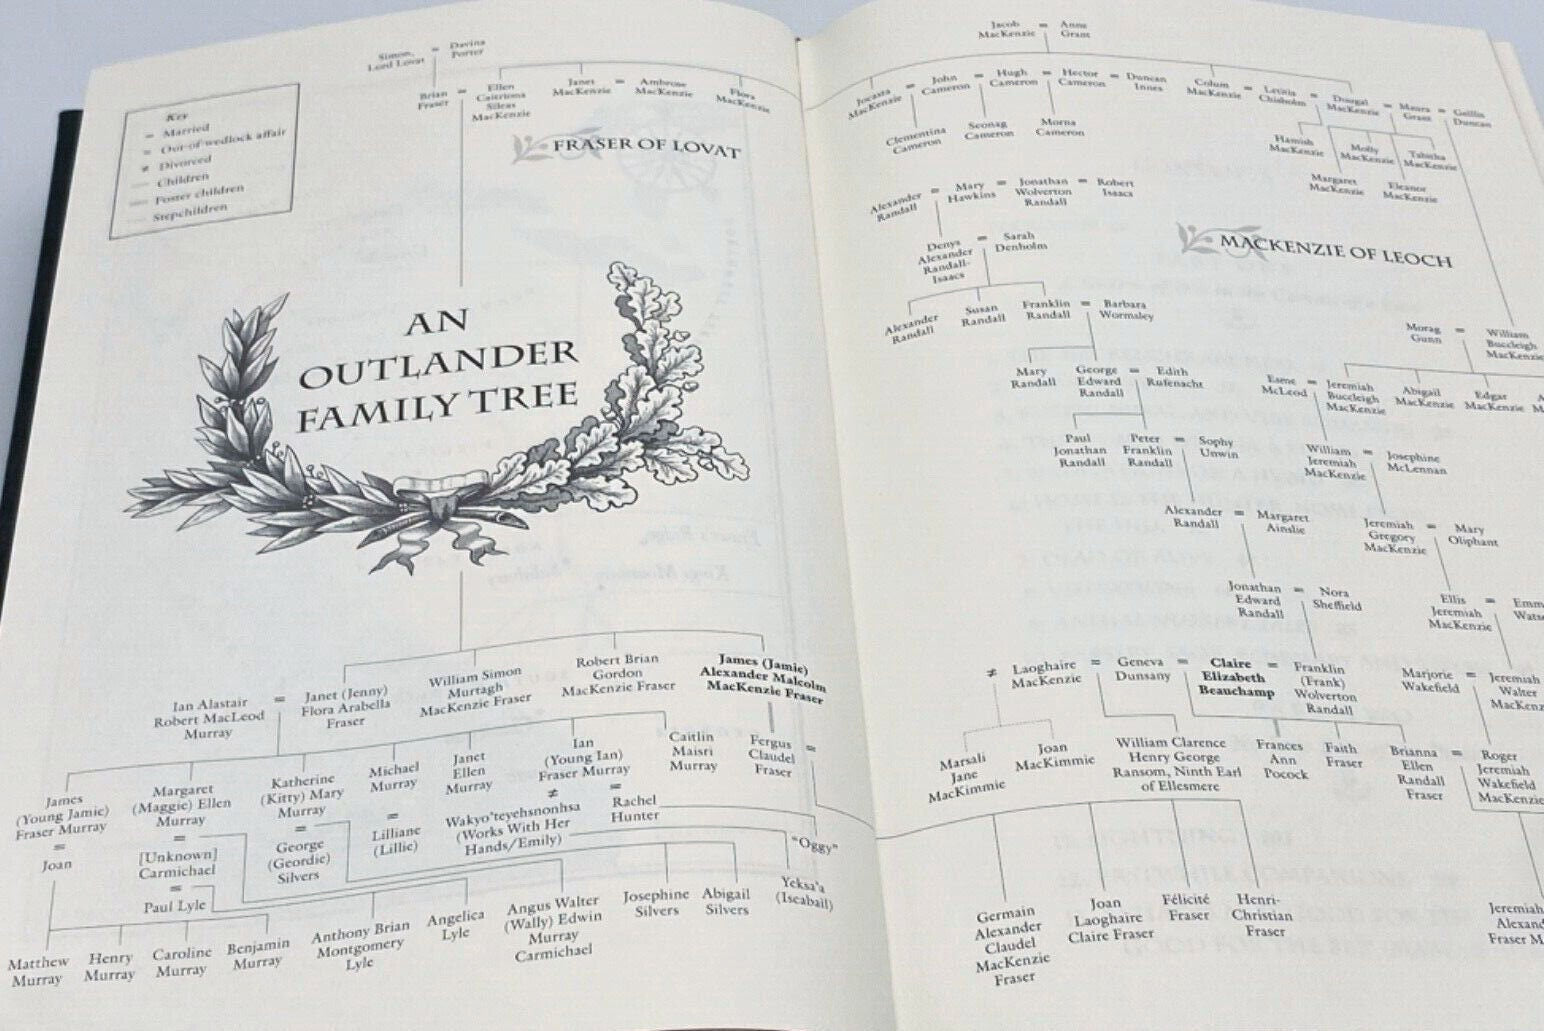 Simon, Lord Lovat = Davina Porter
Key
= Married
= Out-of-wedlock affair
≠ Divorced
Children
Foster children
Stepchildren
Brian Fraser = Ellen Caitriona Sileas MacKenzie
Janet MacKenzie = Ambrose MacKenzie
Flora MacKenzie
FRASER OF LOVAT
AN
OUTLANDER
FAMILY TREE
Ian Alastair Robert MacLeod Murray = Janet (Jenny) Flora Arabella Fraser
William Simon Murtagh MacKenzie Fraser
Robert Brian Gordon MacKenzie Fraser
James (Jamie) Alexander Malcolm MacKenzie Fraser
James (Young Jamie) Fraser Murray
= Joan
Margaret (Maggie) Ellen Murray
= [Unknown] Carmichael
= Paul Lyle
Katherine (Kitty) Mary Murray
= George (Geordie) Silvers
Michael Murray
= Lilliane (Lillie)
Janet Ellen Murray
Ian (Young Ian) Fraser Murray
≠ Wakyo'teyehsnonhsa (Works With Her Hands/Emily)
= Rachel Hunter
Caitlin Maisri Murray
Fergus Claudel Fraser =
"Oggy"
Yeksa'a (Iseabaïl)
Matthew Murray
Henry Murray
Caroline Murray
Benjamin Murray
Anthony Brian Montgomery Lyle
Angelica Lyle
Angus Walter (Wally) Edwin Murray Carmichael
Josephine Silvers
Abigail Silvers
Jacob MacKenzie = Anne Grant
Jocasta MacKenzie = John Cameron = Hugh Cameron = Hector Cameron = Duncan Innes
Colum MacKenzie = Letitia Chisholm = Dougal MacKenzie = Maura Grant = Geillis Duncan
Clementina Cameron
Seonag Cameron
Morna Cameron
Hamish MacKenzie
Molly MacKenzie
Tabitha MacKenzie
Margaret MacKenzie
Eleanor MacKenzie
Alexander Randall = Mary Hawkins = Jonathan Wolverton Randall = Robert Isaacs
MACKENZIE OF LEOCH
Denys Alexander Randall-Isaacs = Sarah Denholm
Alexander Randall
Susan Randall
Franklin Randall = Barbara Wormsley
Morag Gunn = William Buccleigh MacKenzie
Mary Randall
George Edward Randall = Edith Rufenacht
Esme McLeod = Jeremiah Buccleigh MacKenzie
Abigail MacKenzie
Edgar MacKenzie
Paul Jonathan Randall
Peter Franklin Randall = Sophy Unwin
William Jeremiah MacKenzie = Josephine McLennan
Alexander Randall = Margaret Ainslie
Jeremiah Gregory MacKenzie = Mary Oliphant
Jonathan Edward Randall = Nora Sheffield
Ellis Jeremiah MacKenzie = Emm Wats
≠ Laoghaire MacKenzie = Geneva Dunsany = Claire Elizabeth Beauchamp = Franklin (Frank) Wolverton Randall
Marjorie Wakefield = Jeremiah Walter MacKenz
Marsali Jane MacKimmie
Joan MacKimmie
William Clarence Henry George Ransom, Ninth Earl of Ellesmere
Frances Ann Pocock
Faith Fraser
Brianna Ellen Randall Fraser = Roger Jeremiah Wakefield MacKenzie
Germain Alexander Claudel MacKenzie Fraser
Joan Laoghaire Claire Fraser
Félicité Fraser
Henri-Christian Fraser
Jeremiah Alexand Fraser M